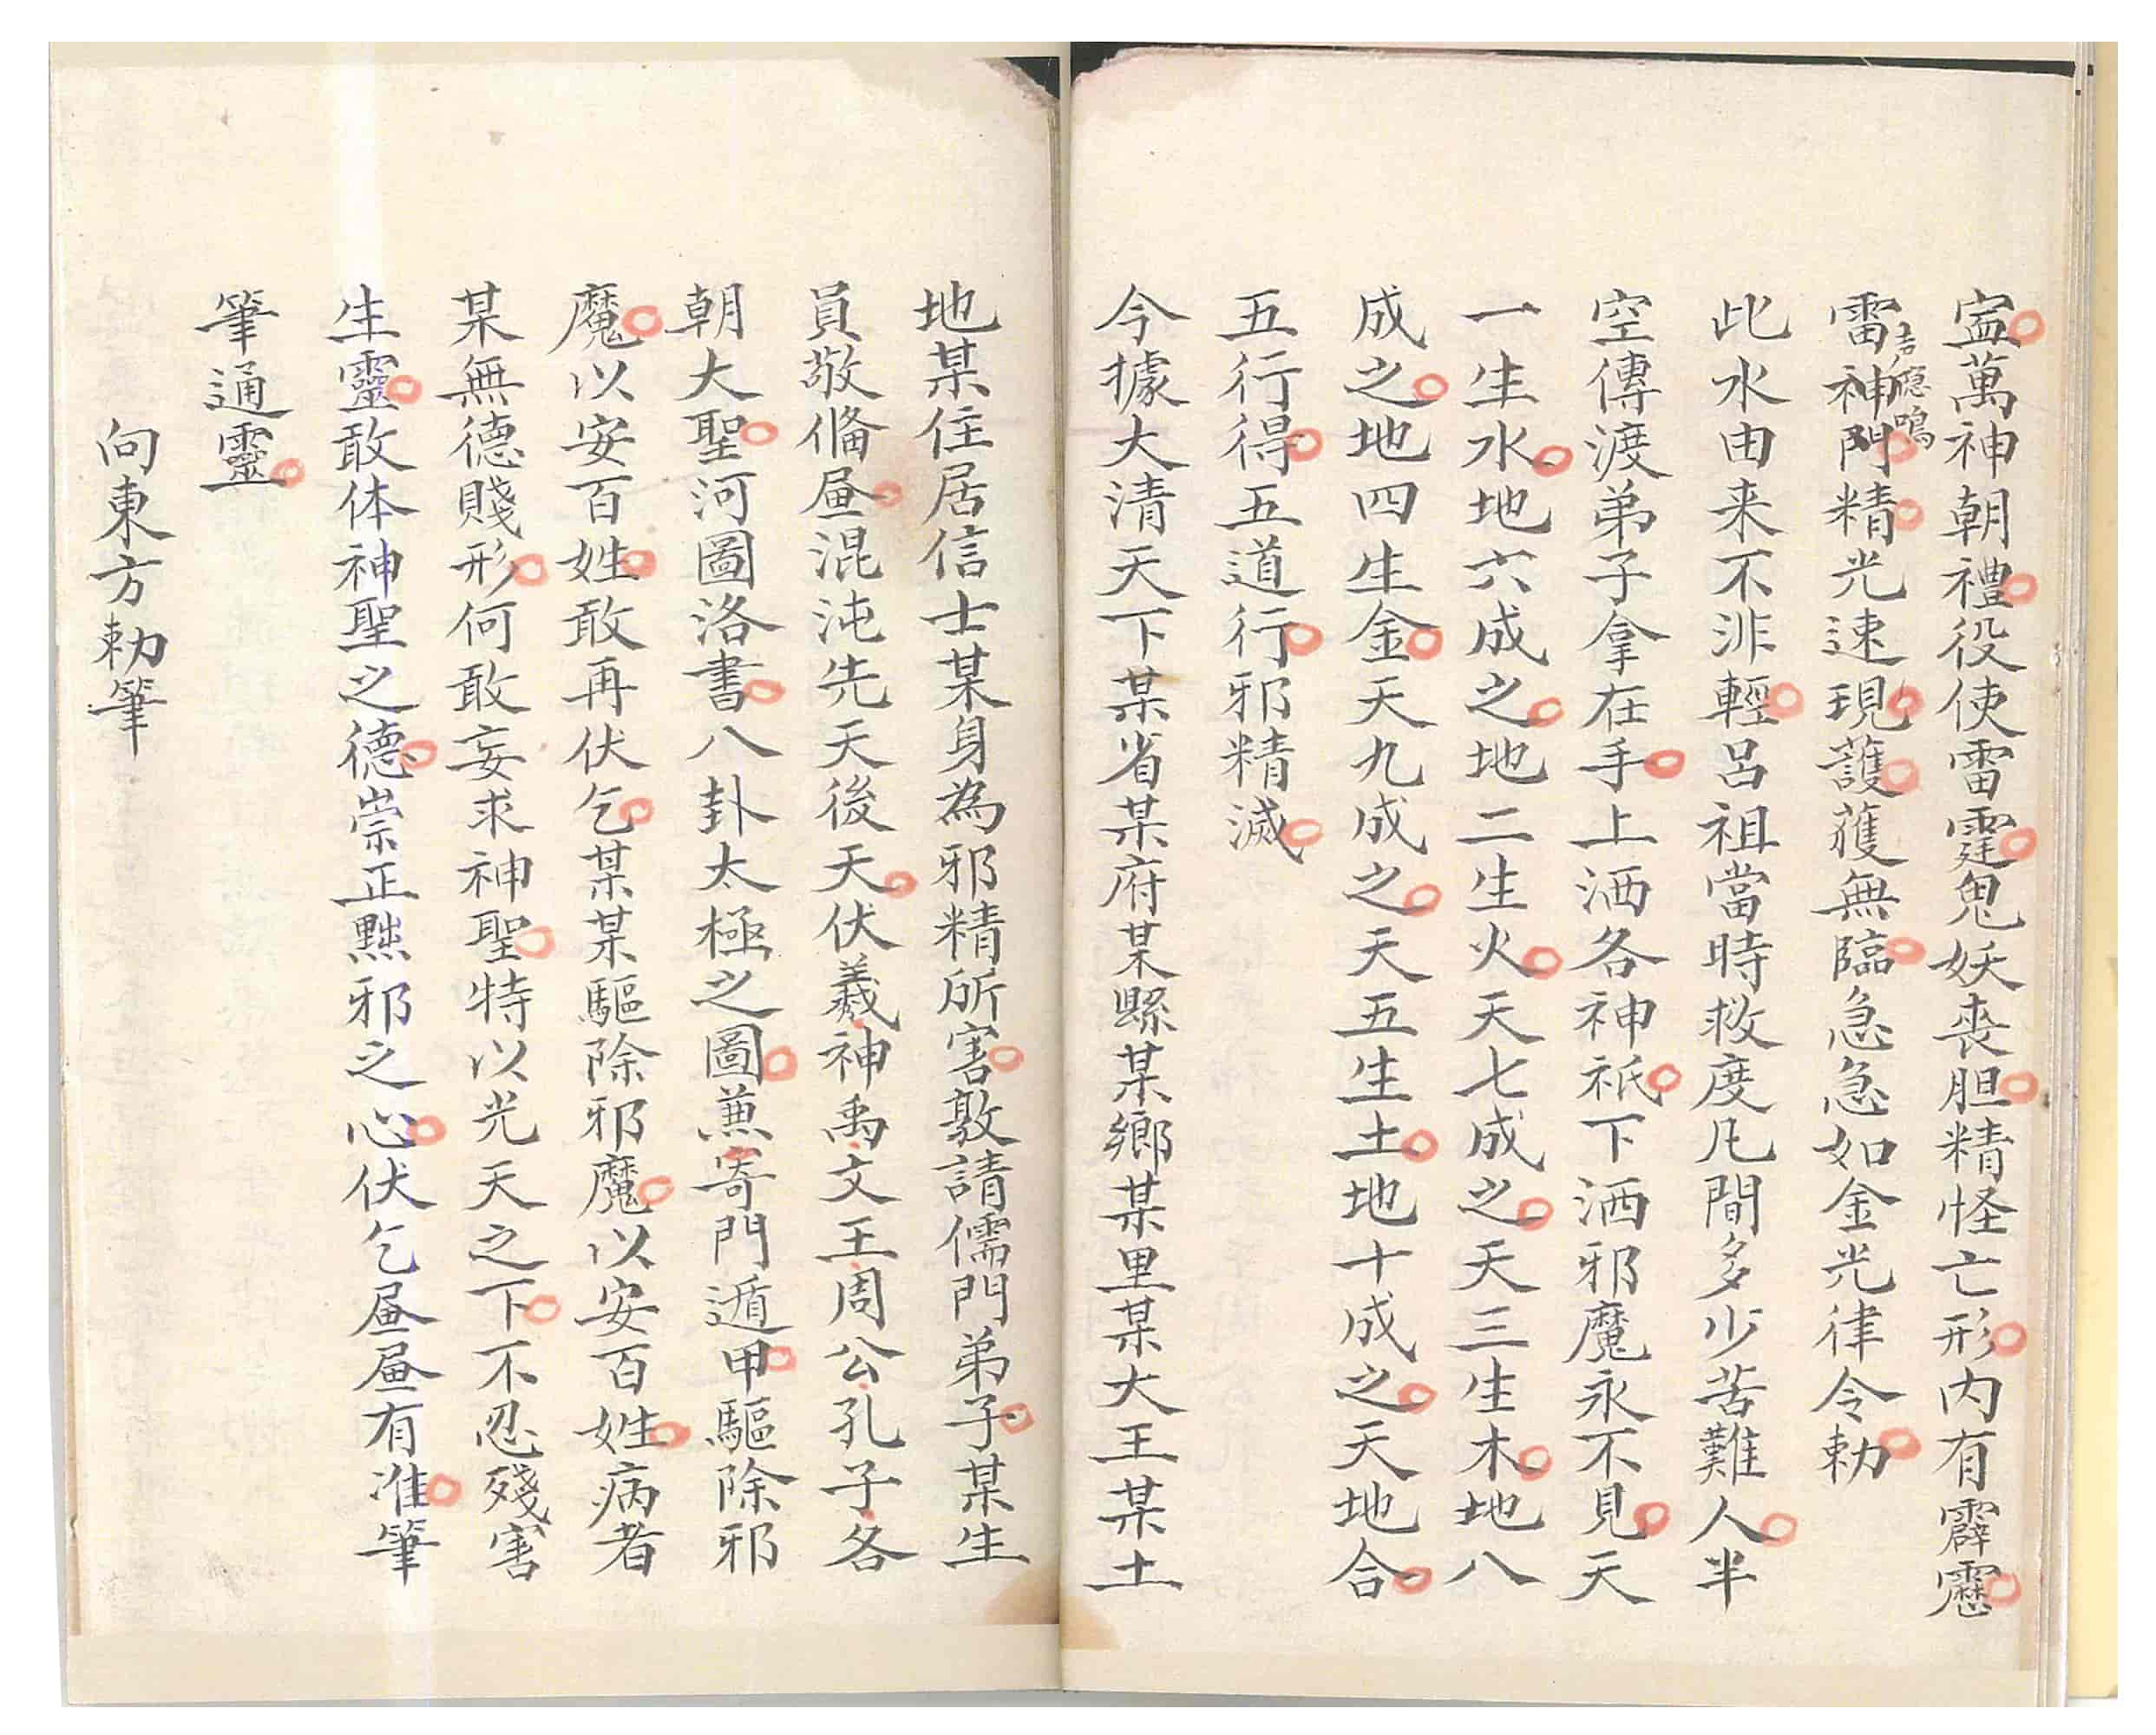 萬神朝禮役使雷霆鬼妖喪胆精怪亡形内有霹靂
雷神門精光速現護䕶無臨急急如金光律令勅
吉應鳴
此水由来不非輕呂祖當時救度凡間多少苦難人半
空傳渡弟子拿在手上洒各神祇下洒邪魔永不見天
一生水地六成之地二生火天七成之天三生木地八
成之地四生金天九成之天五生土地十成之天地合
五行得五道行邪精滅
今據大清天下某省某府某縣某鄉某里某大王某土
地某住居信士某身為邪精所害敦請儒門弟子某生
員敬脩昼混沌先天後天伏羲神禹文王周公孔子各
朝大聖河圖洛書八卦太極之圖蕙寄門遁甲驅除邪
魔以安百姓敢再伏乞某某驅除邪魔以安百姓病者
某無德賤形何敢妄求神聖特以光天之下不忍殘害
生靈敢体神聖之德崇正黜邪之心伏乞昼昼有准筆
筆通靈
向東方勅筆